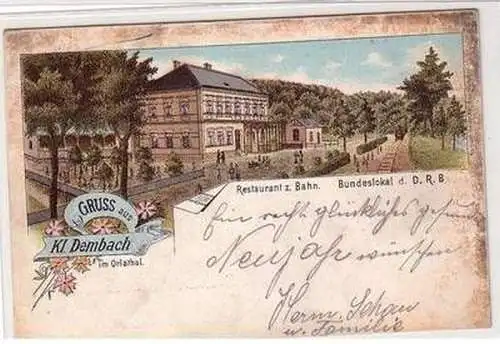 Restaurant z. Bahn. Bundeslokal d. D. R. B.
GRUSS aus
Kl Dembach
im Orlathal.
Ein recht glückliches gesundes
Neujahr wünschen
Herm. Schau
u. Familie